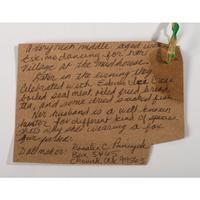 A very rich middle aged woman
Eskimo dancing for her
village at the mudhouse.
Later in the evening they
celebrated with Eskimo Ice Cream
boiled seal meat, oiled fried bread
tea, and some dried smoked fish
Her husband is a well known
hunter for different kind of species
that's why she's wearing a fox
fur parka.
Doll maker: Rosalie C. Paniyak
Box 5445
Chevak, AK 99563